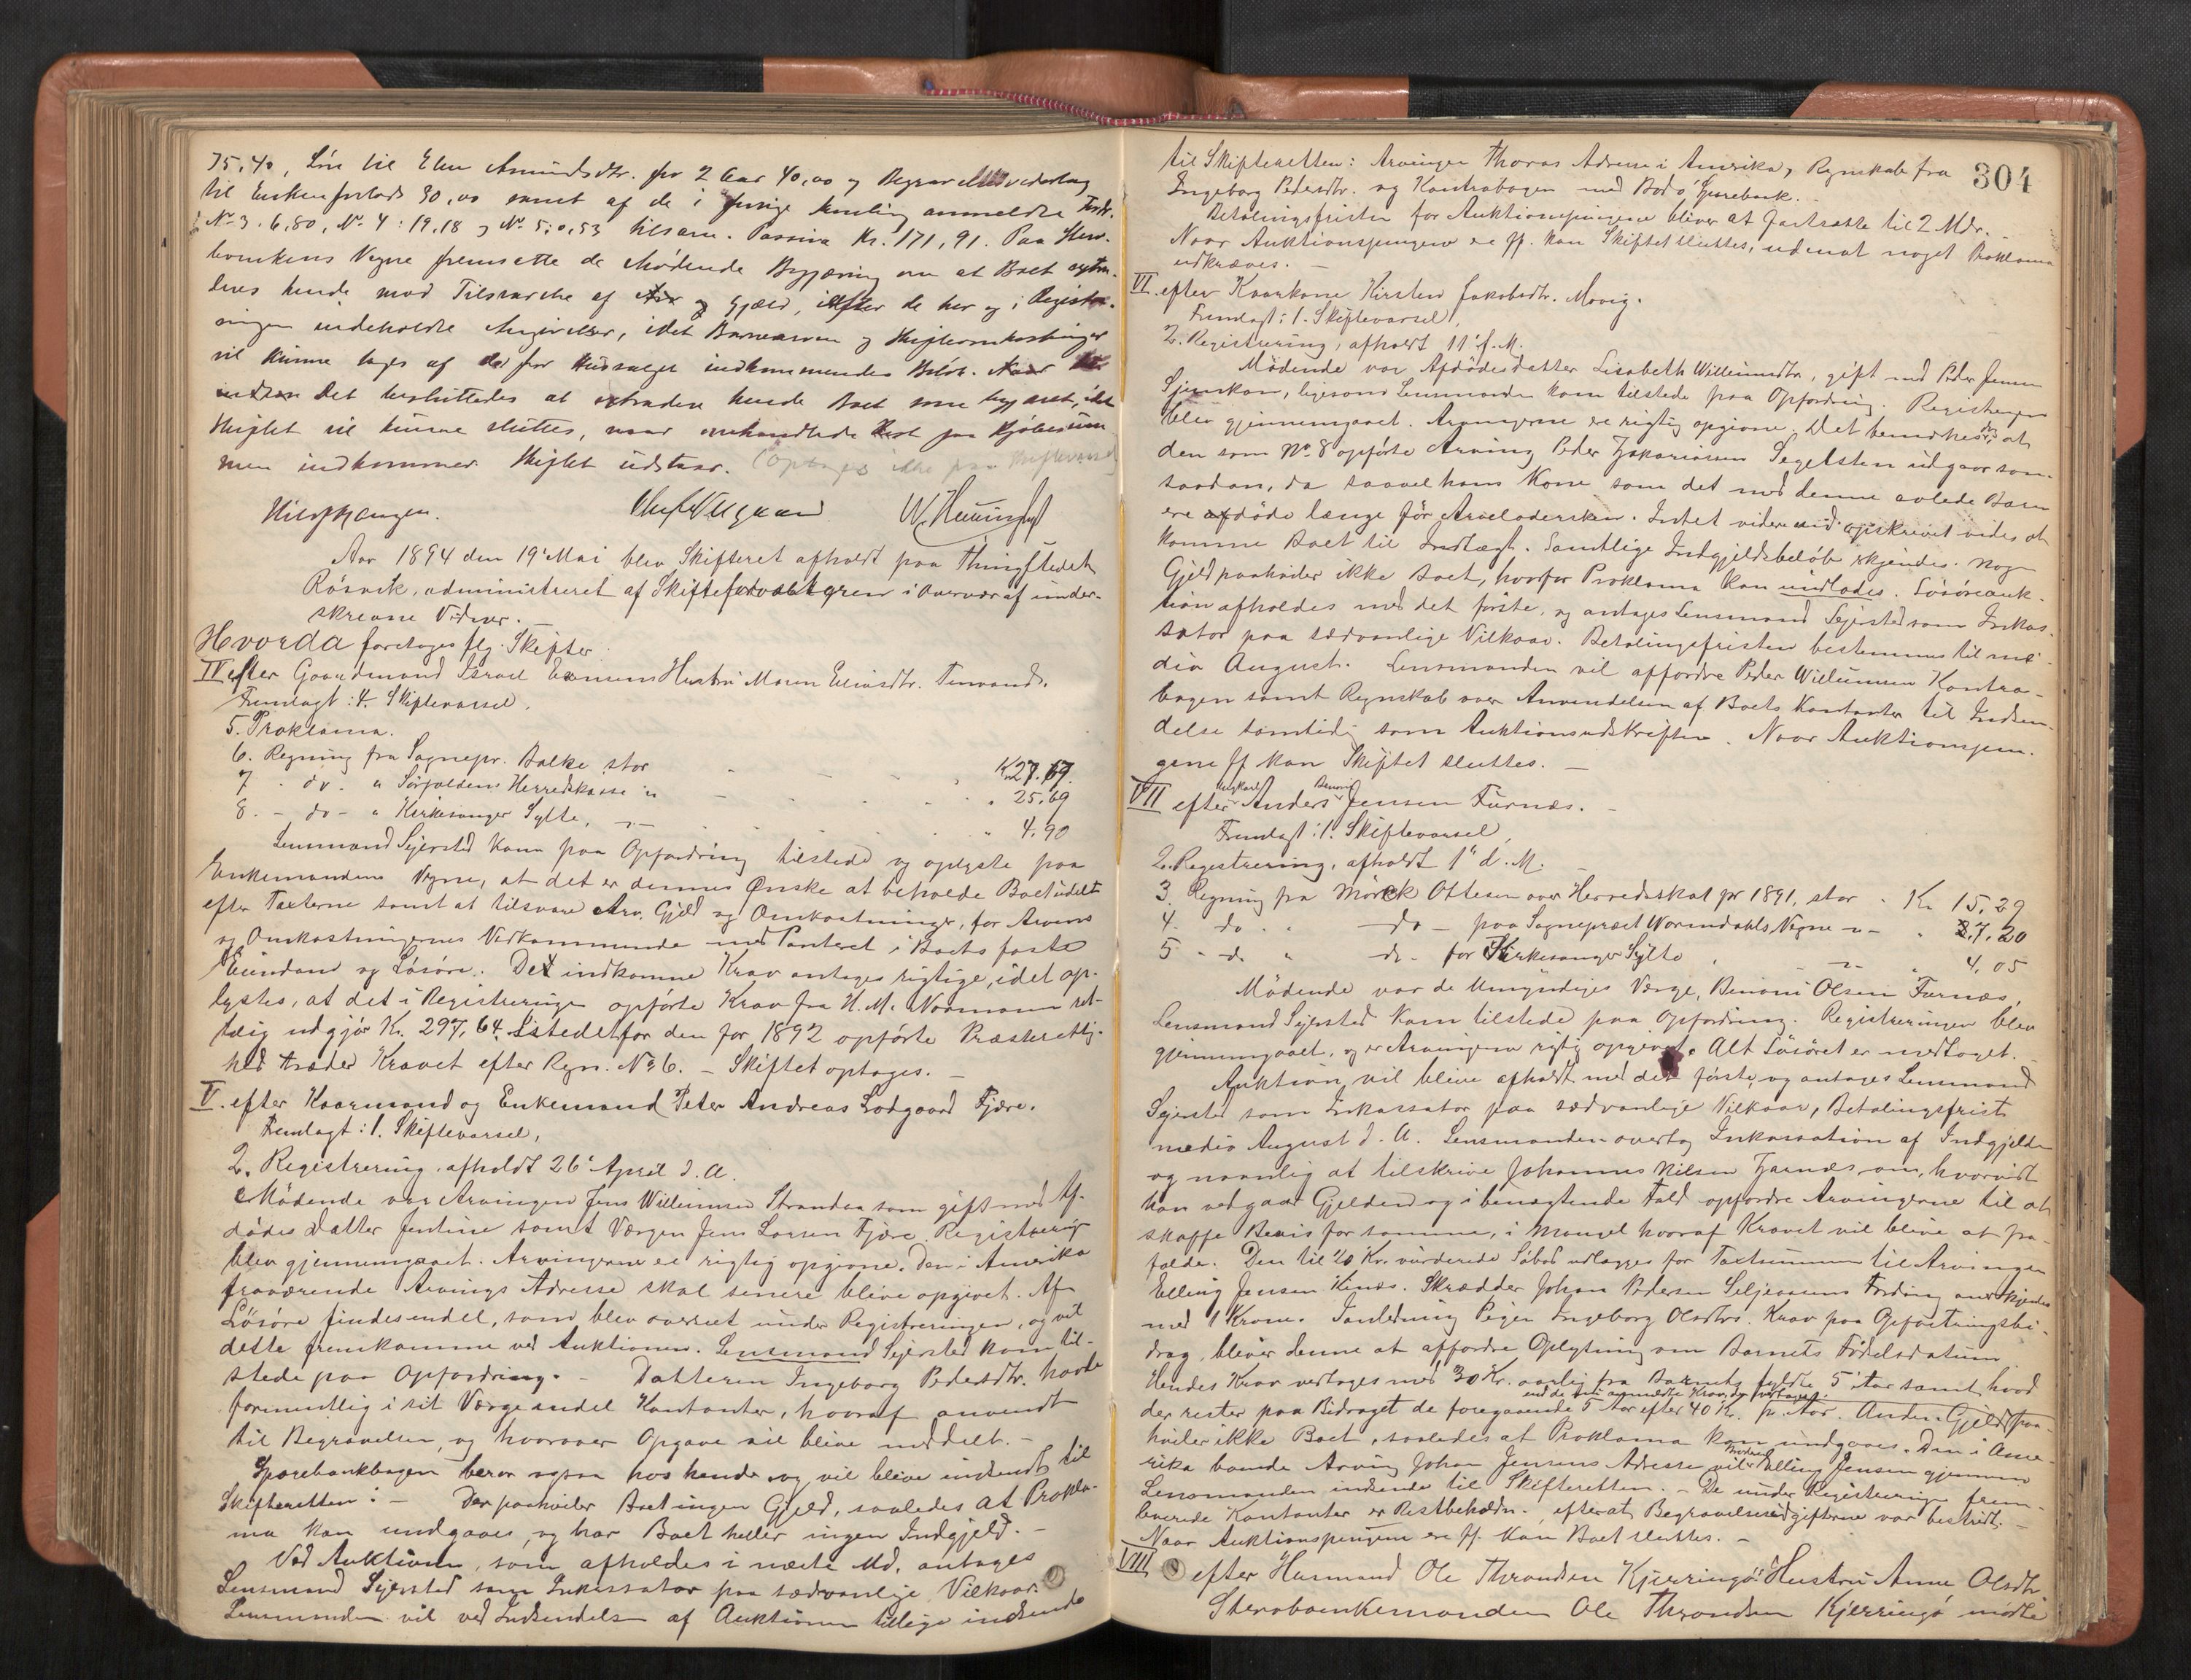 75,40, Løn til Elen Amundsdtr. for 2 Aar 40,00 og Begravelsesvederlag
til Enkens forlods 30,00 samt af de i forrige Samling anmeldte Fordr.
No 3. 6,80, No 4: 19,18 og No 5: 0,53 tilsam. Passiva Kr. 171,91. Paa Sterv-
boenkens Vegne fremsatte de Mødende Begjæring om at Boet extra-
deres hende mod Tilsvarelse af Arv og Gjæld, efter de her og i Registre-
ringen indeholdte Angivelser, idet Barnearven og Skifteomkostninger
vil kunne tages af det for Huusalget indkommendes Beløb.
Det besluttedes at extradere hende Boet som begjæret, idet
Skiftet vil kunne sluttes, naar omhandlede Rest paa Kjøbesum-
men indkommer. Skiftet udstaar. (Optages ikke paa Skiftevarsel)
W. Henningsen
Aar 1894 den 19' Mai blev Skifteret afholdt paa Thingstedet
Røsvik, administreret af Skifteforvalteren i Overvær af under-
skrevne Vidner. -
Hvorda foretages flg. Skifter
IV efter Gaardmand Israel Hustru Maren Eliasdtr. Tennvand.
Fremlagt: 4. Skiftevarsel.
5. Proklama.
6. Regning fra Sognepr. Balke stor Kr. 27.67.
7 " do. " Sørfoldens Herredskasse " " 25,69
8. - do - " Kirkesanger Sylte, " 4.90
Lensmand Sejersted kom paa Opfordring tilstede og oplyste paa
Enkemandens Vegne, at det er dennes Ønske at beholde Boet udelt
efter Taxterne samt at tilsvare Arv. Gjæld og Omkostninger, for Arvens
og Omkostningernes Vedkommende med Panteret i Boets faste
Eiendom og Løsøre. De indkomne Krav antages rigtige, idet op-
lystes, at det i Registreringen opførte Krav fra H. M. Normann ret-
telig udgjør Kr. 297,64. Istedetfor den for 1892 opførte Præsterettig-
hed træder Kravet efter Regn. No 6. - Skiftet optages. -
V. efter Kaarmand og Enkemand Peter Andreas Lodgaard Fjære.
Fremlagt: 1. Skiftevarsel,
2. Registrering afholdt 26' April d. A.
Mødende var Arvingen Jens Willumsen Strandaa som gift med Af-
dødes Datter Jentine samt Værgen Jens Larsen Fjære. Registrering
blev gjennemgaaet. Arvingerne ere rigtig opgivne. Den i Amerika
fraværende Arvings Adresse skal senere blive opgivet. Af
Løsøre findes endel, som blev overseet under Registreringen, og vil
dette fremkomme ved Auktionen. Lensmand Sejersted kom til-
stede paa Opfordring. - Datteren Ingeborg Pedersdtr. havde
formentlig i sit Værge endel Kontanter, hvoraf anvendt
til Begravelsen, og hvorover Opgave vil blive meddelt. -
Sparebankbogen beror ogsaa hos hende og vil blive indsendt til
Skifteretten: - Der paahviler Boet ingen Gjæld, saaledes at Prokla-
ma kan undgaaes, og har Boet heller ingen Indgjæld. -
Ved Auktionen, som afholdes i næste Md, antages
Lensmand Sejersted som Inkassator paa sædvanlige Vilkaar.
Lensmanden vil ved Indsendelsen af Auktionen tillige indsende
304
til Skifteretten: Arvingen Thoras Adresse i Amerika, Regnskab fra
Ingeborg Pedersdtr. og Kontrabogen med Bodø Sparebank. -
Betalingsfristen for Auktionspengene bliver at fastsætte til 2 Mdr. -
Naar Auktionspengene ere ff. kan Skiftet sluttes, uden at noget Proklama
udkræves. -
VI. efter Kaarkone Kirsten Jakobsdtr. Movig.
Fremlagt: 1. Skiftevarsel,
2. Registrering, afholdt 11' f. M.
Mødende var Afdødes datter Lisabeth Willumsdtr, gift med Peder Jensen
ligesom Lensmanden kom tilstede paa Opfordring. Registreringen
blev gjennemgaaet. Arvingerne ere rigtig opgivne. Det bemærkes dog at
den som No 8 opførte Arving Peder Zakariasen Segelsten udgaar som
saadan, da saavel hans Kone som det med denne avlede Barn
ere afdøde længe før Arveladersken. Intet videre end opskrevet vides at
komme Boet til Indtægt. Samtlige Indgjeldsbeløb erkjendes. Nogen
Gjeld paahviler ikke Boet, hvorfor Proklama kan undlades. Løsøreauk-
tion afholdes med det første, og antages Lensmand Sejersted som Inkas-
sator paa sædvanlige Vilkaar. Betalingsfristen bestemmes til me-
dio August. Lensmanden vil affordre Peder Willumsen Kontra-
bogen samt Regnskab over Anvendelsen af Boets Kontanter til Indsen-
delse samtidig som Auktionsudskriften. Naar Auktionspen-
gene ff kan Skiftet sluttes. -
VII efter Ungkarl Anders Benoni Jensen Furnæs. -
Fremlagt: 1. Skiftevarsel,
2. Registrering, afholdt 1' d. M. -
3. Regning fra Mørck Ottesen over Herredsskat pr 1891, stor " Kr. 15,29
4. do. " do - paa Sognepræst Wormdahls Vegne - " - " 27,20
5 - do " do - for Kirkesanger Sylte " - " 4,05
Mødende var de Umyndiges Værge, Benoni Olsen Furnæs,
Lensmand Sejersted kom tilstede paa Opfordring. Registreringen blev
gjennemgaaet, og er Arvingerne rigtig opgivet. Alt Løsøret er medtaget.
Auktion vil blive afholdt med det første, og antages Lensmand
Sejersted som Inkassator paa sædvanlige Vilkaar, Betalingsfrist
medio August d. A. Lensmanden overtog Inkassation af Indgjelden
og navnlig at tilskrive Johannes Nilsen om, hvorvidt
han vedgaar Gjelden og i benægtende Fald opfordre Arvingerne til at
skaffe Bevis for samme, i Mangel hvoraf Kravet vil blive at fra-
falde. Den til 20 Kr. vurderede Søbod udlægges for Taxtsummen til Arvingen
Elling Jensen Kines. Skrædder Johan Pedersen Seljeaasens Fordring anerkjendes
med 1 Krone. I anledning Pigen Ingeborg Olsdtrs. Krav paa Opfostringsbi-
drag, bliver denne at affordre Oplysning om Barnets Fødselsdatum.
Hendes Krav vedtages med 30 Kr. aarlig fra Barnets fyldte 5' Aar samt hvad
der rester paa Bidraget de foregaaende 5 Aar efter 40 Kr. pr. Aar. Anden Gjeld end de nu anmeldte Krav, der vedtages, paa-
hviler ikke Boet, saaledes at Proklama kan undgaaes. Den i Ame-
rika boende Arving Johan Jensens Adresse vil Broderen Elling Jensen gjennem
Lensmanden indsende til Skifteretten. - De under Registreringen frem-
leverede Kontanter er Restbeholdn. efterat Begravelsesudgifterne var bestridt. -
Naar Auktionspengene ere ff. kan Boet sluttes. -
VIII efter Husmand Ole Thronsen Kjerringø's Hustru Anne Olsdtr
Stervboenkemanden Ole Thronsen Kjerringø mødte